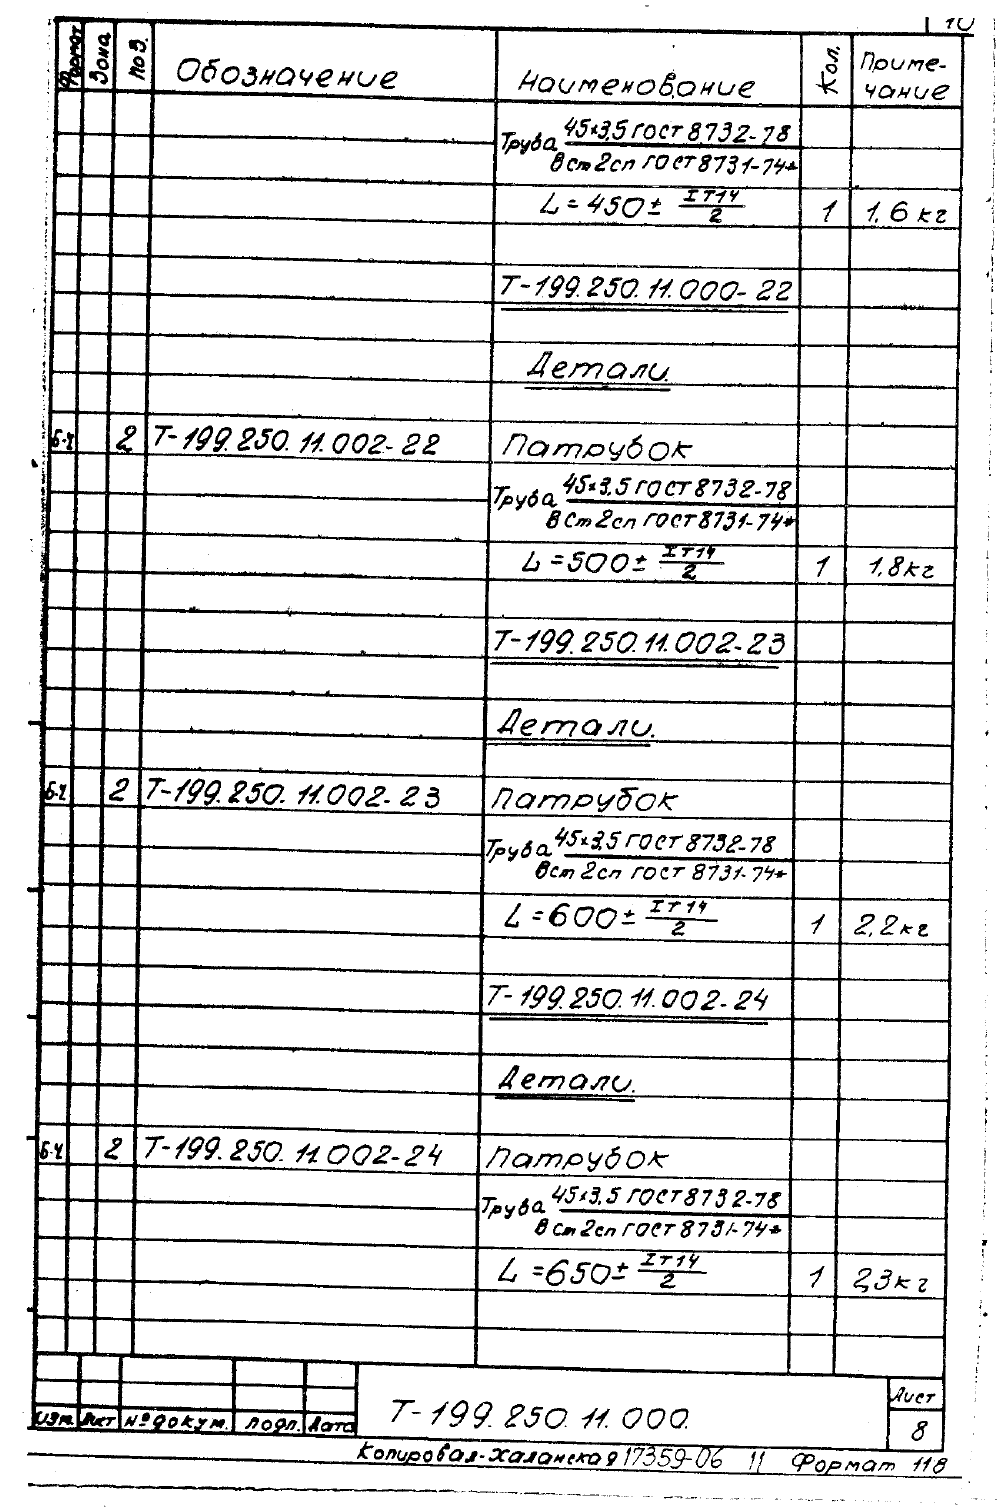 10
Формат Зона Поз. Обозначение Наименование Кол. Приме-
чание
Труба 45х3,5 ГОСТ 8732-78
Вст2сп ГОСТ 8731-74*
L=450± IT14/2 1 1,6 кг
Т-199.250.11.000-22
Детали.
Б.Ч 2 Т-199.250.11.002-22 Патрубок
Труба 45х3,5 ГОСТ 8732-78
ВСт2сп ГОСТ 8731-74*
L=500± IT14/2 1 1,8кг
Т-199.250.11.002-23
Детали.
Б.Ч 2 Т-199.250.11.002-23 Патрубок
Труба 45х3,5 ГОСТ 8732-78
Вст2сп ГОСТ 8731-74*
L=600± IT14/2 1 2,2кг
Т-199.250.11.002-24
Детали.
Б.Ч 2 Т-199.250.11.002-24 Патрубок
Труба 45х3,5 ГОСТ 8732-78
ВСт2сп ГОСТ 8731-74*
L=650± IT14/2 1 2,3кг
Изм. Лист №докум. Подп. Дата Т-199.250.11.000. Лист
8
Копировал-Халанская 17359-06 11 Формат 11В